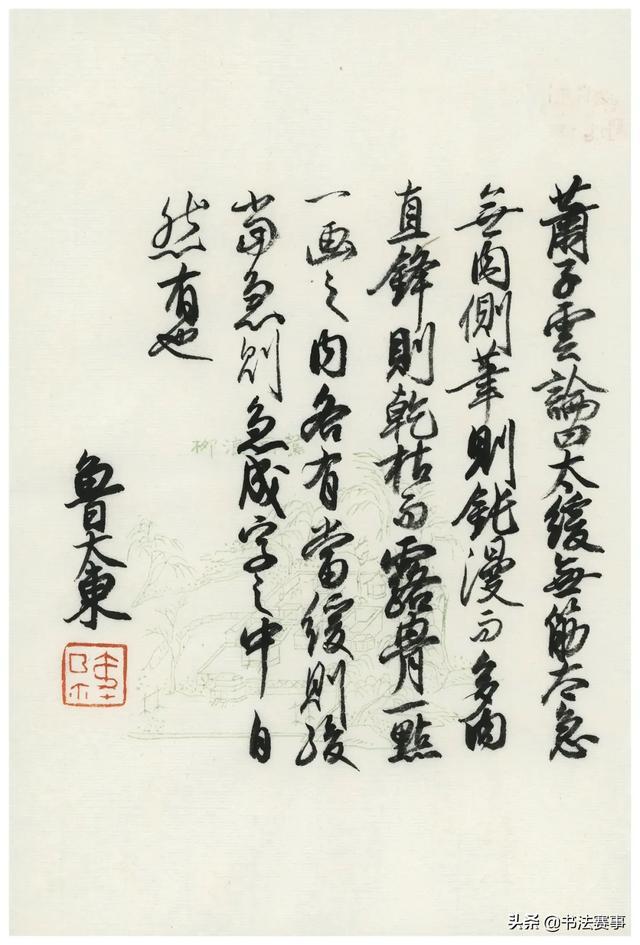 蕭子雲論曰太緩無筋太急
無肉側筆則鈍漫而多肉
直鋒則乾枯而露骨一點
一画之内各有當緩則緩
當急則急成字之中自
然有也
魯大東
柳浪
头条 @书法赛事